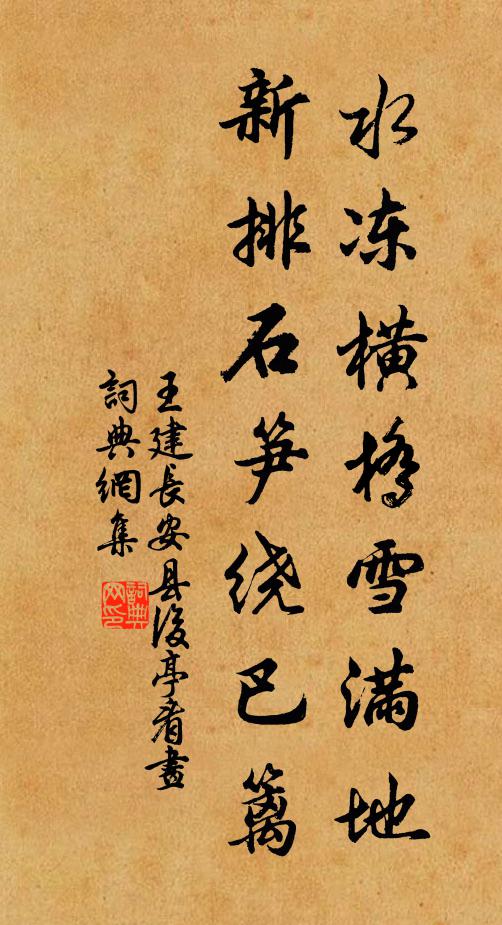 水冻横桥雪满地
新排石笋绕巴篱
王建長安县後亭看畫
詞典網集
詞典
网印